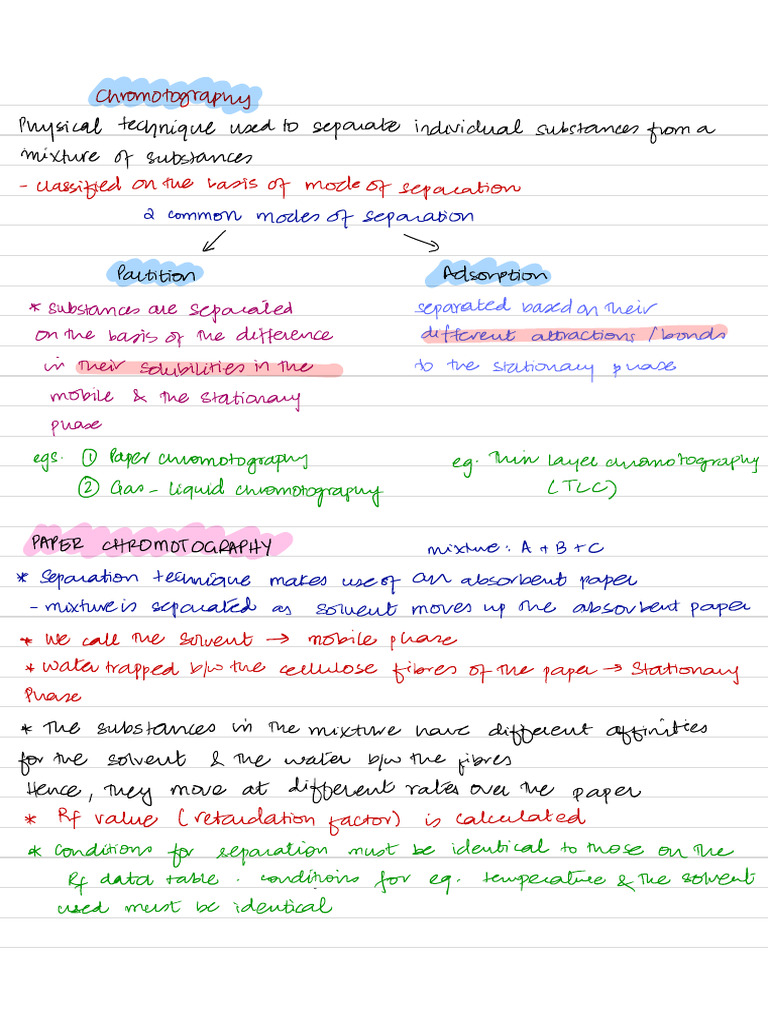 Chromotography
Physical technique used to separate individual substances from a
mixture of substances
- classified on the basis of mode of separation
2 common modes of separation
Partition
* substances are separated
on the basis of the difference
in their solubilities in the
mobile & the stationary
phase
egs. ① Paper chromotography
② Gas - liquid chromotography
Adsorption
separated based on their
different attractions / bonds
to the stationary phase
eg. Thin layer chromotography
(TLC)
PAPER CHROMOTOGRAPHY
mixture: A + B + C
* separation technique makes use of an absorbent paper
- mixture is separated as solvent moves up the absorbent paper
* We call the solvent → mobile phase
* Water trapped b/w the cellulose fibres of the paper → Stationary
Phase
* The substances in the mixture have different affinities
for the solvent & the water b/w the fibres
Hence, they move at different rates over the paper
* Rf value (retardation factor) is calculated
* conditions for separation must be identical to those on the
Rf data table. conditions for eg. temperature & the solvent
used must be identical